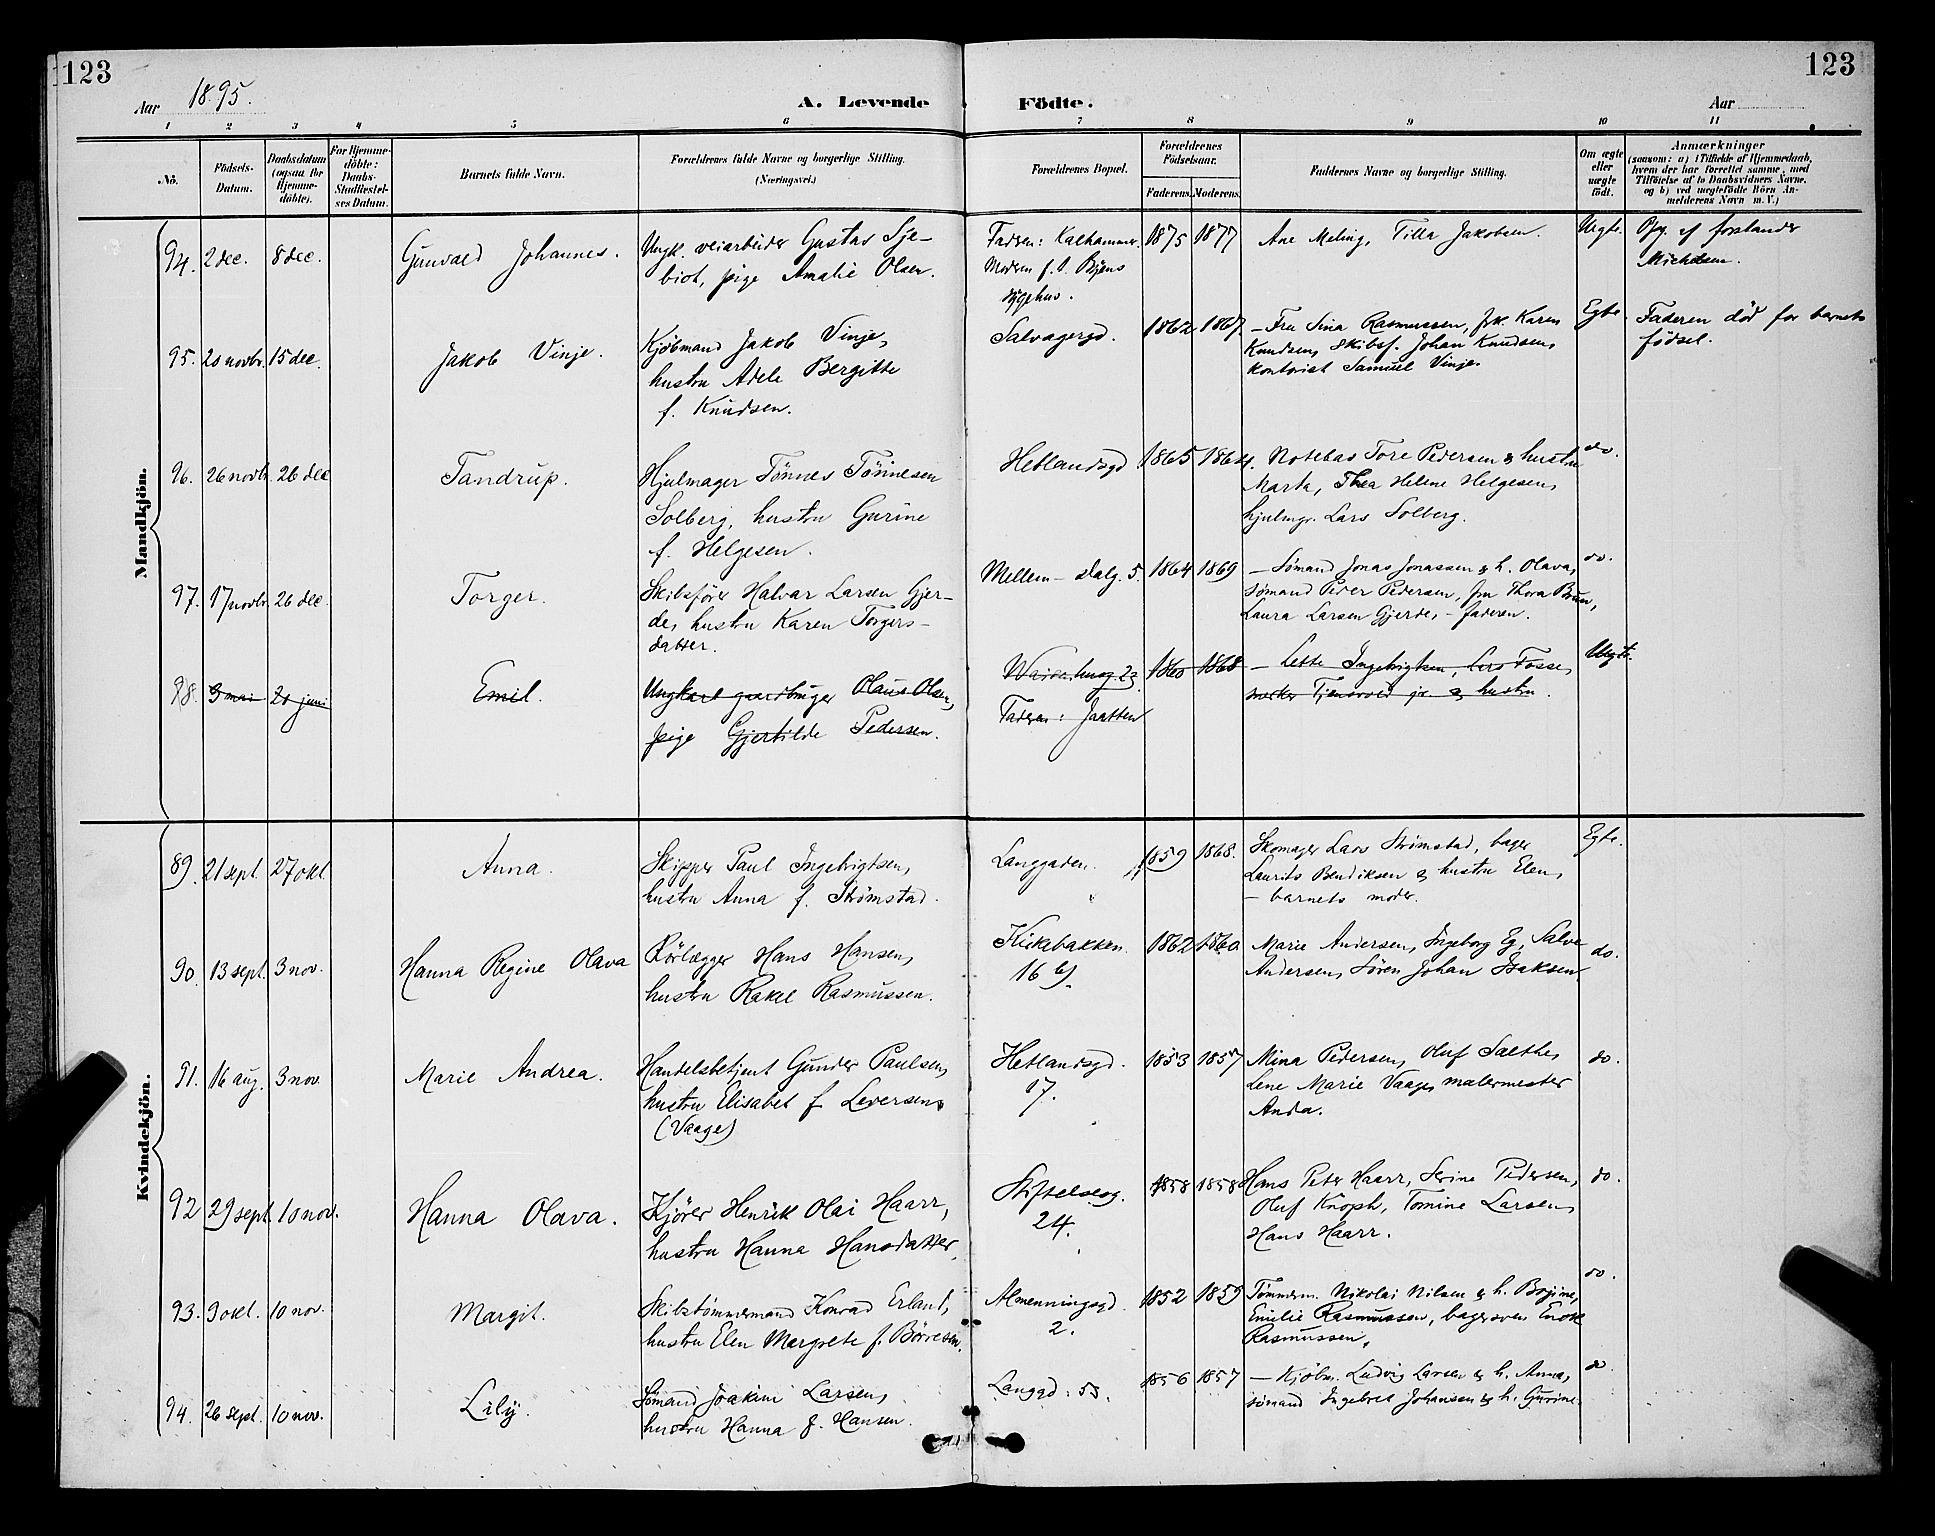 123
123
Aar 1895.
A. Levende Födte.
Aar
1 2 3 4 5 6 7 8 9 10 11
No.
Födsels-
Datum.
Daabsdatum
(ogsaa for
Hjemme-
döbte).
For Hjemme-
döbte:
Daabs-
Stadfæstel-
ses Datum.
Barnets fulde Navn.
Forældrenes fulde Navne og borgerlige Stilling.
(Næringsvei.)
Forældrenes Bopæl.
Forældrenes
Födselsaar.
Faderens. Moderens.
Faddernes Navne og borgerlige Stilling.
Om ægte
eller
uægte
födt.
Anmærkninger
(saasom: a) i Tilfælde af Hjemmedaab,
hvem der har forrettet samme, med
Tilföielse af to Daabsvidners Navne,
og b) ved uægtefödte Börn An-
melderens Navn m. V.)
Mandkjön.
94. 2 dec. 8 dec. Gunvald Johannes.
Ungk. veiarbeider Gustav Sje-
biot, pige Amalie Olsen.
Faderen: Kalhammer.
Moderen f. S. Byens
sygehus.
1875 1877
Ane Meling, Tilla Jakobsen.
Uegte.
Opg. af forstander
Michelsen.
95. 20 novbr. 15 dec. Jakob Vinje.
Kjøbmand Jakob Vinje,
hustru Adele Bergitte
f. Knudsen.
Salvagergd. 1862 1867.
- Fru Sina Rasmussen, frk. Karen
Knudsen, skibsf. Johan Knudsen,
kontorist Samuel Vinje.
Egte.
Faderen död før barnets
födsel.
96. 26 novbr. 26 dec Tandrup.
Hjulmager Tönnes Tönnesen
Solberg, hustru Gurine
f. Helgesen.
Hetlandsgd 1865 1864.
Notebas Tore Pedersen & hustru
Marta, Thea Helene Helgesen,
hjulmgr. Lars Solberg.
do.
97. 17 novbr. 26 dec. Torger.
Skibsfører Halvar Larsen Gjer-
de, hustru Karen Torgers-
datter.
Mellem-dalg. 5. 1864 1869
- Sømand Jonas Jonassen & h. Olava,
sømand Peder Pedersen, frn Thora Brun,
Laura Larsen Gjerde, - faderen.
do.
98. 3 mai 20 juni Emil.
Ungkarl gaardbruger Olaus Olsen,
pige Gjertilde Pedersen.
23.
Faderen: Jaatten
1860 1868
- Lette Ingebrigtsen, Lars Fosse,
Tjensvold jr. & hustru.
Uegte.
Kvindekjön.
89. 21 sept. 27 okt. Anna.
Skipper Paul Ingebrigtsen,
hustru Anna f. Strömstad.
Langgaden. 1859 1868.
Skomager Lars Strömstad, bager
Laurits Bendiksen & hustru Elen,
- barnets moder.
Egte.
90. 13 sept. 3 nov. Hanna Regine Olava
Rörlægger Hans Hansen,
hustru Rakel Rasmussen.
Kirkebakken
16 b).
1862 1860
Marie Andersen, Ingeborg Eg, Salve
Andersen, Søren Johan Isaksen.
do.
91. 16 aug. 3 nov. Marie Andrea.
Handelsbetjent Gunder Paulsen,
hustru Elisabet f Leversen
(Vaage)
Hetlandsgd.
17.
1853 1857
Mina Pedersen, Oluf Sælthe,
Lene Marie Vaage, malermester
Anda.
do.
92 29 sept. 10 nov. Hanna Olava.
Kjörer Henrik Olai Haarr,
hustru Hanna Hansdatter.
Stiftelsesg.
24.
1858 1858
Hans Peter Haarr, Serine Pedersen,
Oluf Knoph, Tomine Larsen,
Hans Haarr.
do.
93. 9 okt. 10 nov. Margit.
Skibstömmermand Konrad Erland,
hustru Elen Margrete f. Börresen.
Almenningsgd.
2.
1852 1859
Tömmerm. Nikolai Nilsen & h. Birjine,
Emilie Rasmussen, bagersven Enok
Rasmussen.
do.
94. 26 sept. 10 nov. Lily.
Sömand Joakim Larsen,
hustru Hanna f. Hansen.
Langgd. 53. 1856 1857
- Kjöbm. Ludvig Larsen & h. Anna,
sömand Ingebret Johansen & h. Gurine.
do.